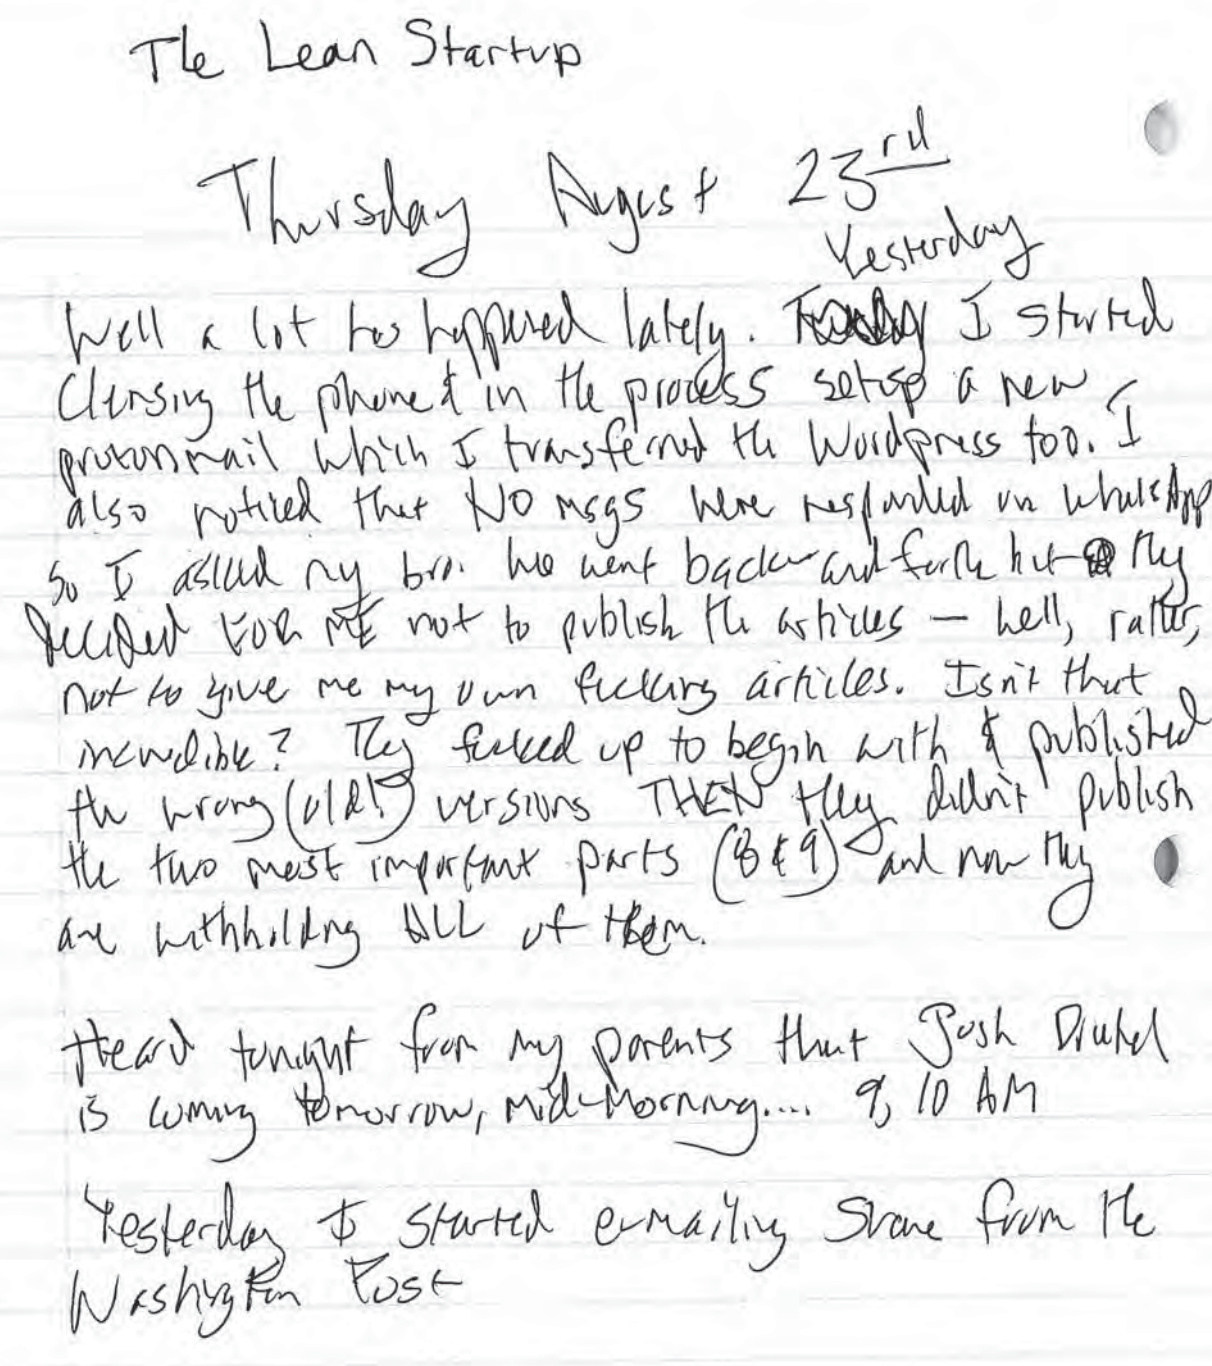 The Lean Startup
Thursday August 23rd
Yesterday
Well a lot has happened lately. I started
cleansing the phone & in the process setup a new
protonmail which I transferred the Wordpress too. I
also noticed that NO msgs were responded on WhatsApp
So I asked my bro. We went back and forth but they
decided FOR ME not to publish the articles — hell, rather,
not to give me my own fucking articles. Isn't that
incredible? They fucked up to begin with & published
the wrong (old!) versions THEN they didn't publish
the two most important parts (8 & 9) and now they
are withholding ALL of them.
Heard tonight from my parents that Josh
is coming tomorrow, mid-morning.... 9, 10 AM
Yesterday I started e-mailing from the
Washington Post